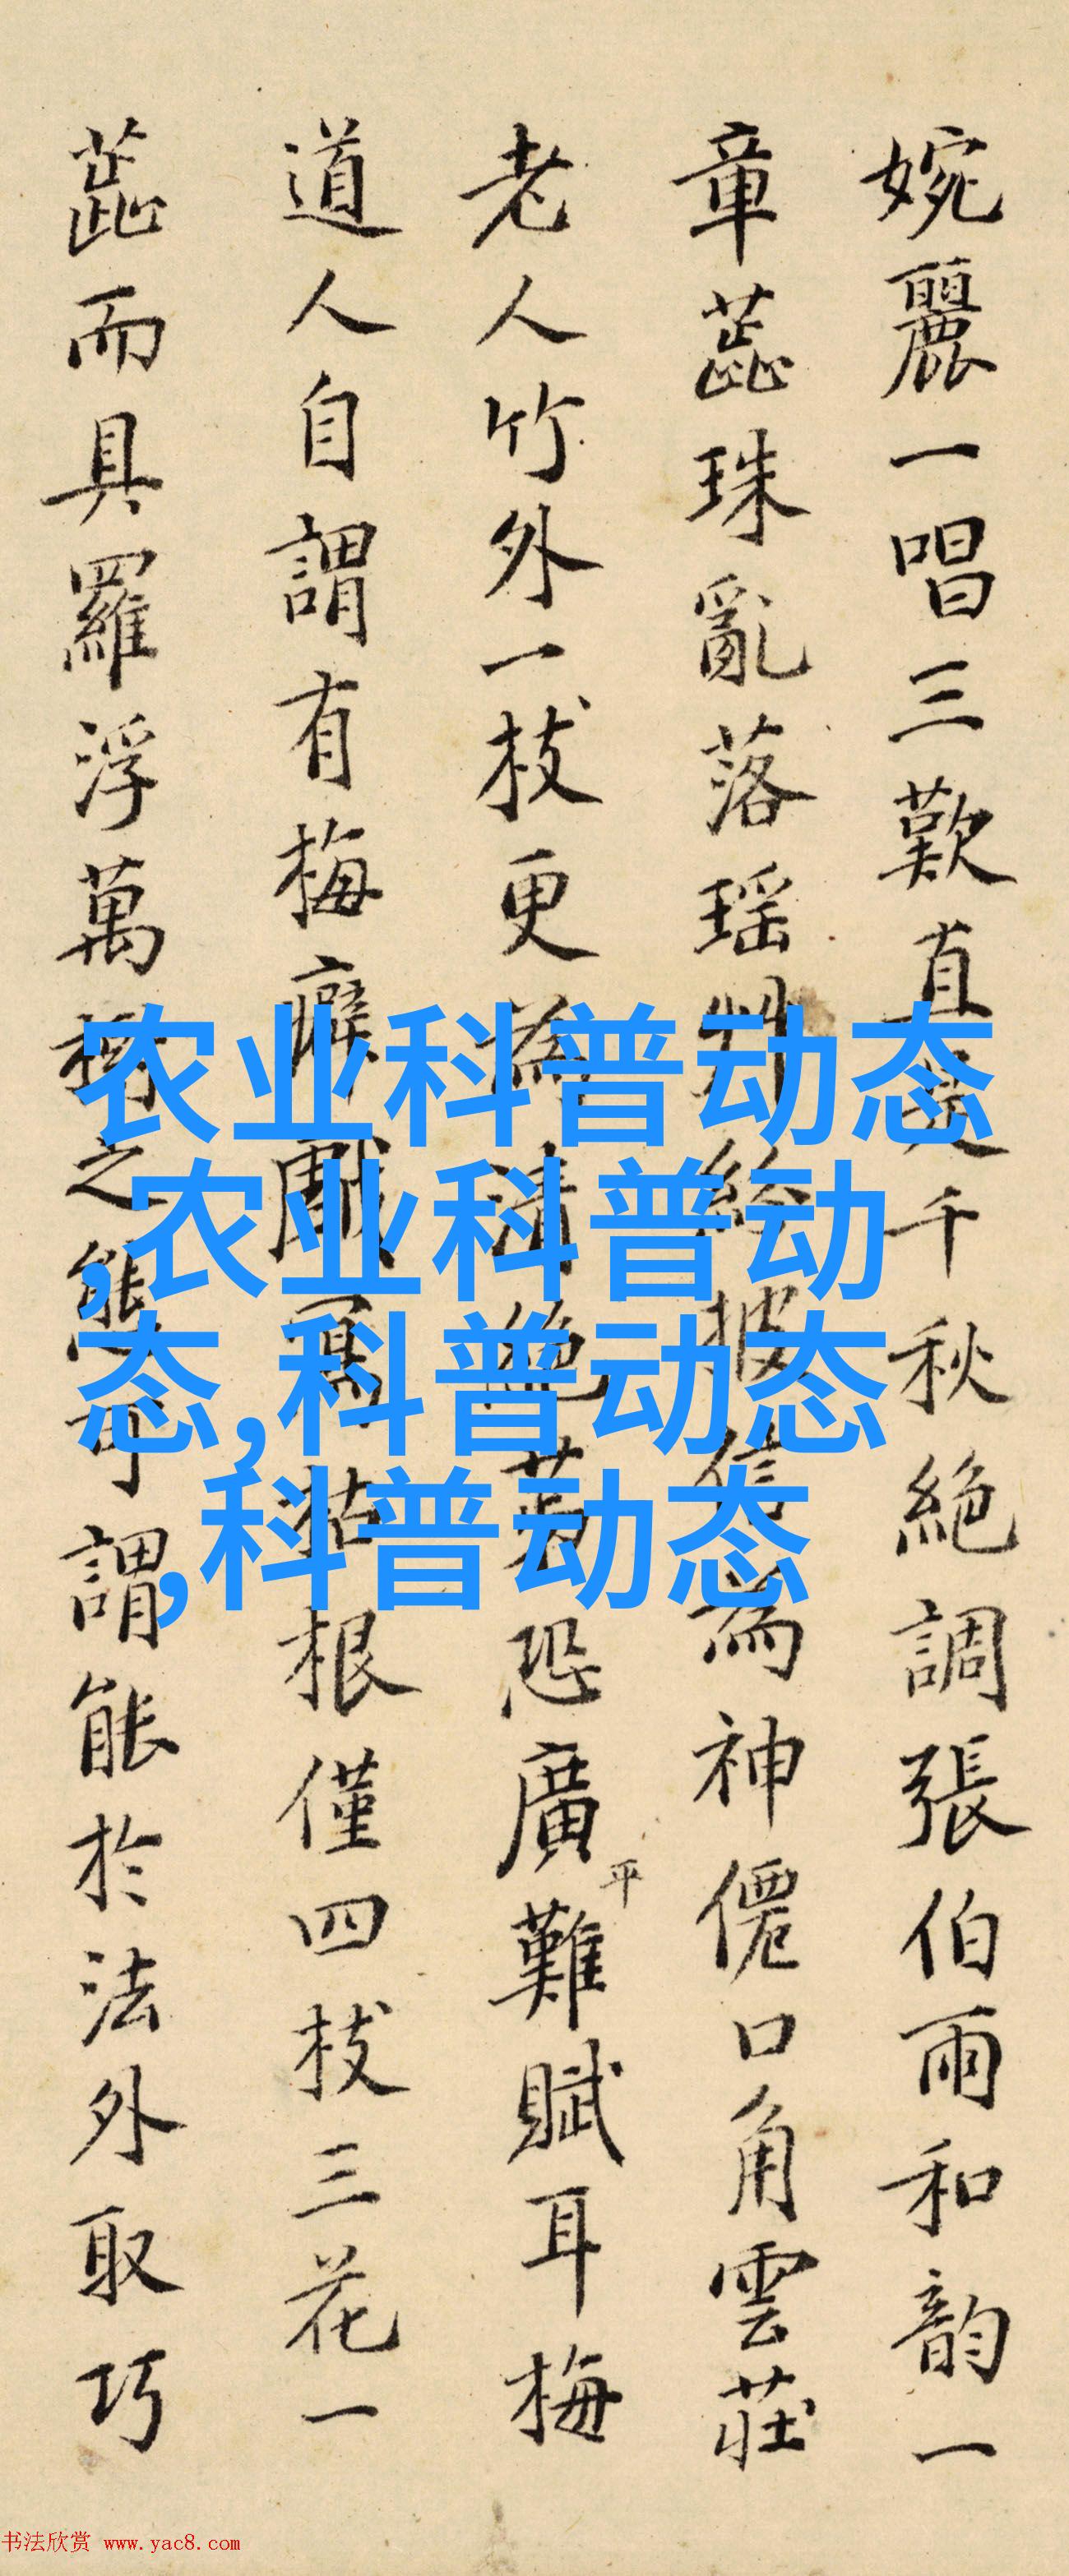 婉麗一唱三歎直是千秋絶調張伯雨和韵一
章蕋珠亂落瑶 紛披信為神僊口角雲莊
老人竹外一枝更為清絶茲恐廣平難賦耳梅
道人自謂有梅癖戲寫枯根僅四枝三花一
蕋而具羅浮萬樹之態可謂能於法外取巧
农业科普动态
,农业科普动
态,科普动态
,科普动态
书法欣赏 www.yac8.com